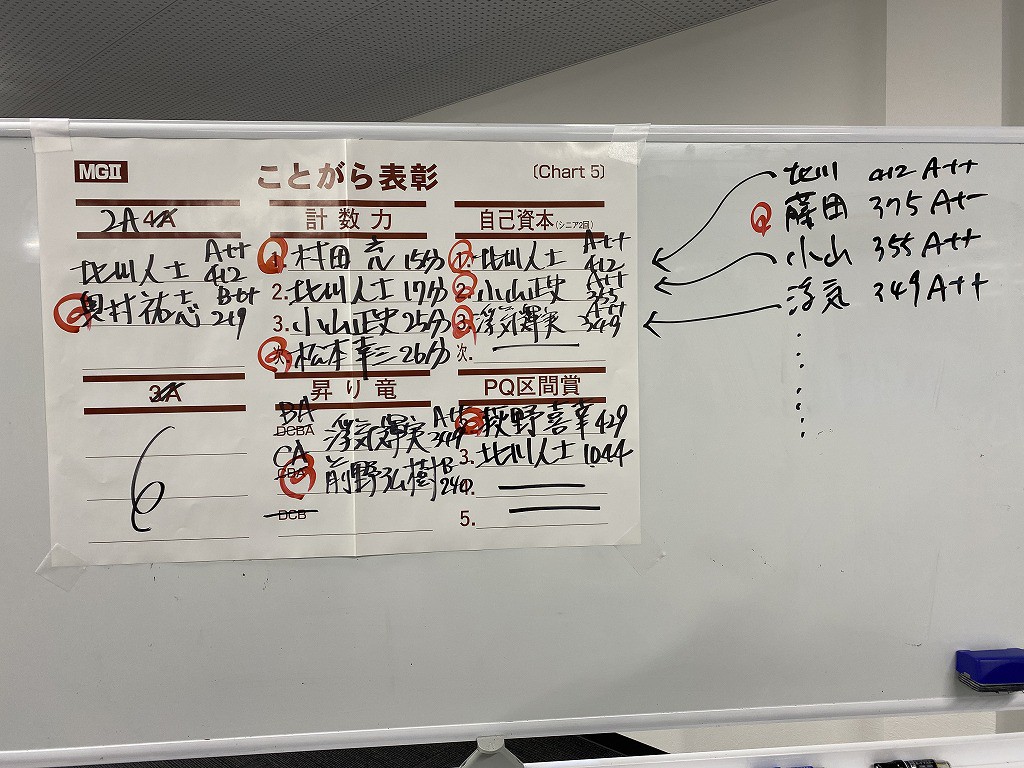 MGⅡ
ことがら表彰
(Chart 5)
2A 4A
北川人士 A++ 412
奥村祐志 B++ 219
3A
計数力
1. 村田 亮 15分
2. 北川人士 17分
3. 小山正史 25分
次. 松本幸三 26分
自己資本(シニア2回)
1. 北川人士 A++ 412
2. 小山正史 A++ 355
3. 浮気輝実 A++ 349
次.
昇り竜
BA DCBA 浮気輝実 A++ 349
CA CBA 前野弘樹 B- 240
DCB
PQ区間賞
荻野喜幸 429
3. 北川人士 1044
4.
5.
北川 412 A++
藤田 375 A+-
小山 355 A++
浮気 349 A++